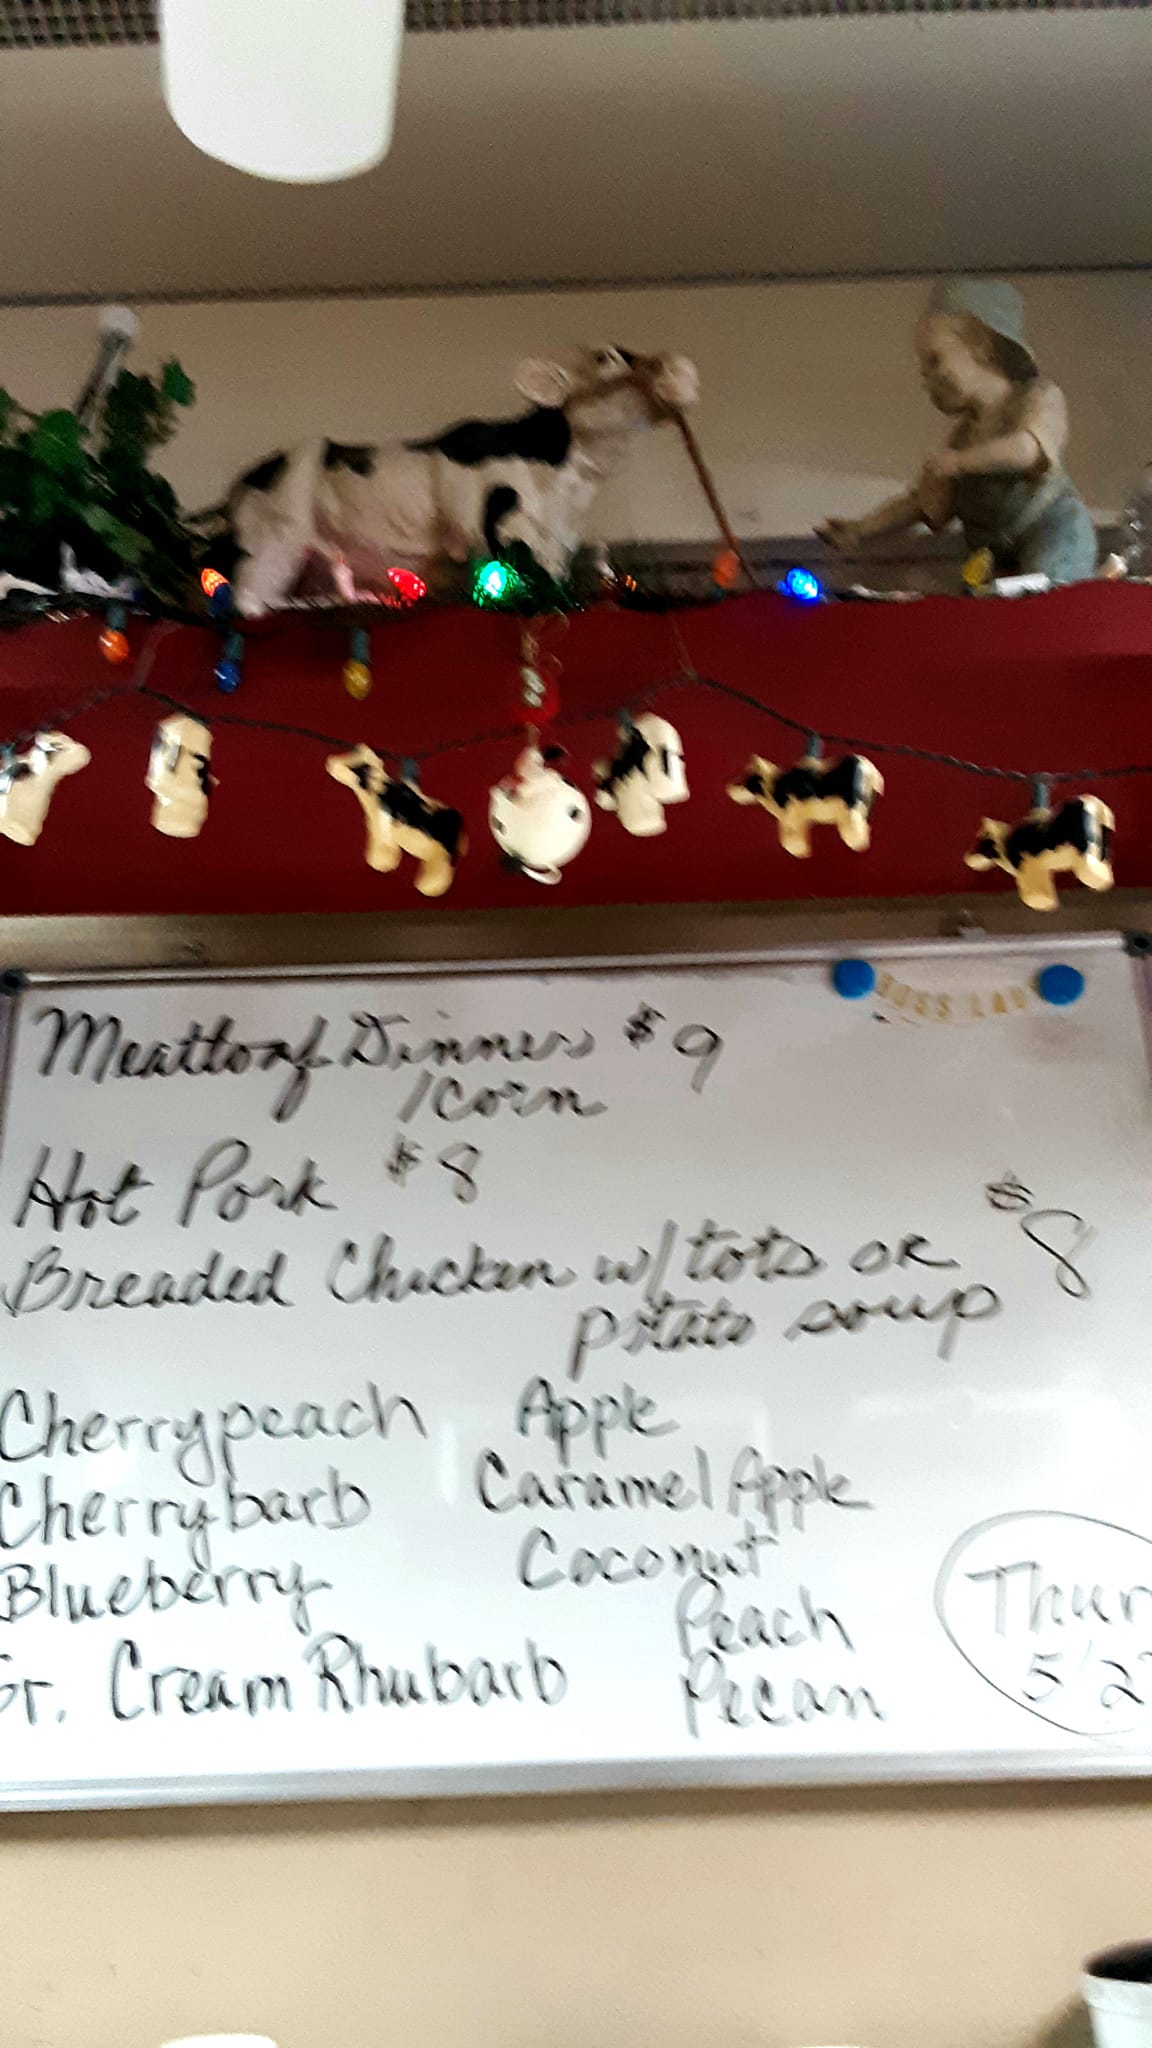 BOSS LADY
Meatloaf Dinner $9
/Corn
Hot Pork $8
Breaded Chicken w/tots or $8
potato soup
Cherrypeach Apple
Cherrybarb Caramel Apple
Blueberry Coconut
Peach
Sr. Cream Rhubarb Pecan
Thur
5/2